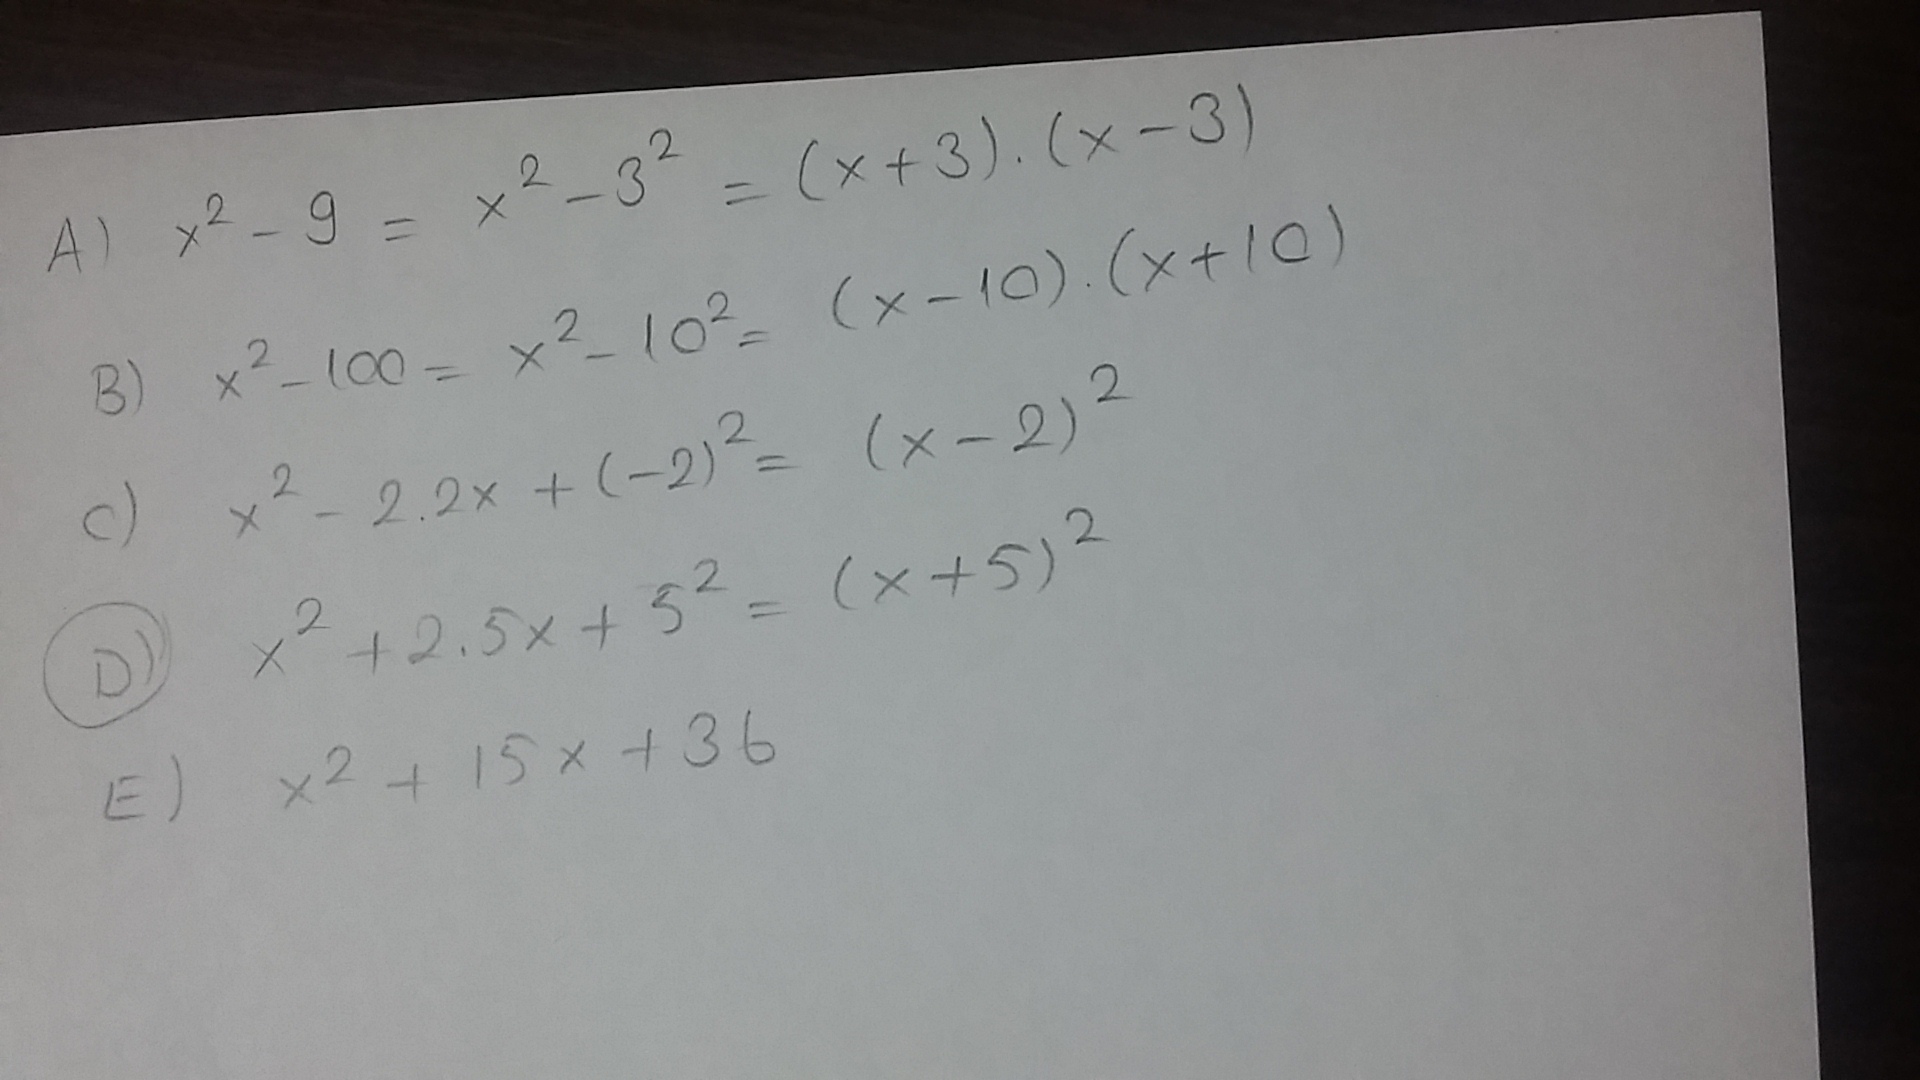 A) x² - 9 = x² - 3² = (x+3).(x-3)
B) x² - 100 = x² - 10² = (x-10).(x+10)
C) x² - 2.2x + (-2)² = (x-2)²
D) x² + 2.5x + 5² = (x+5)²
E) x² + 15x + 36